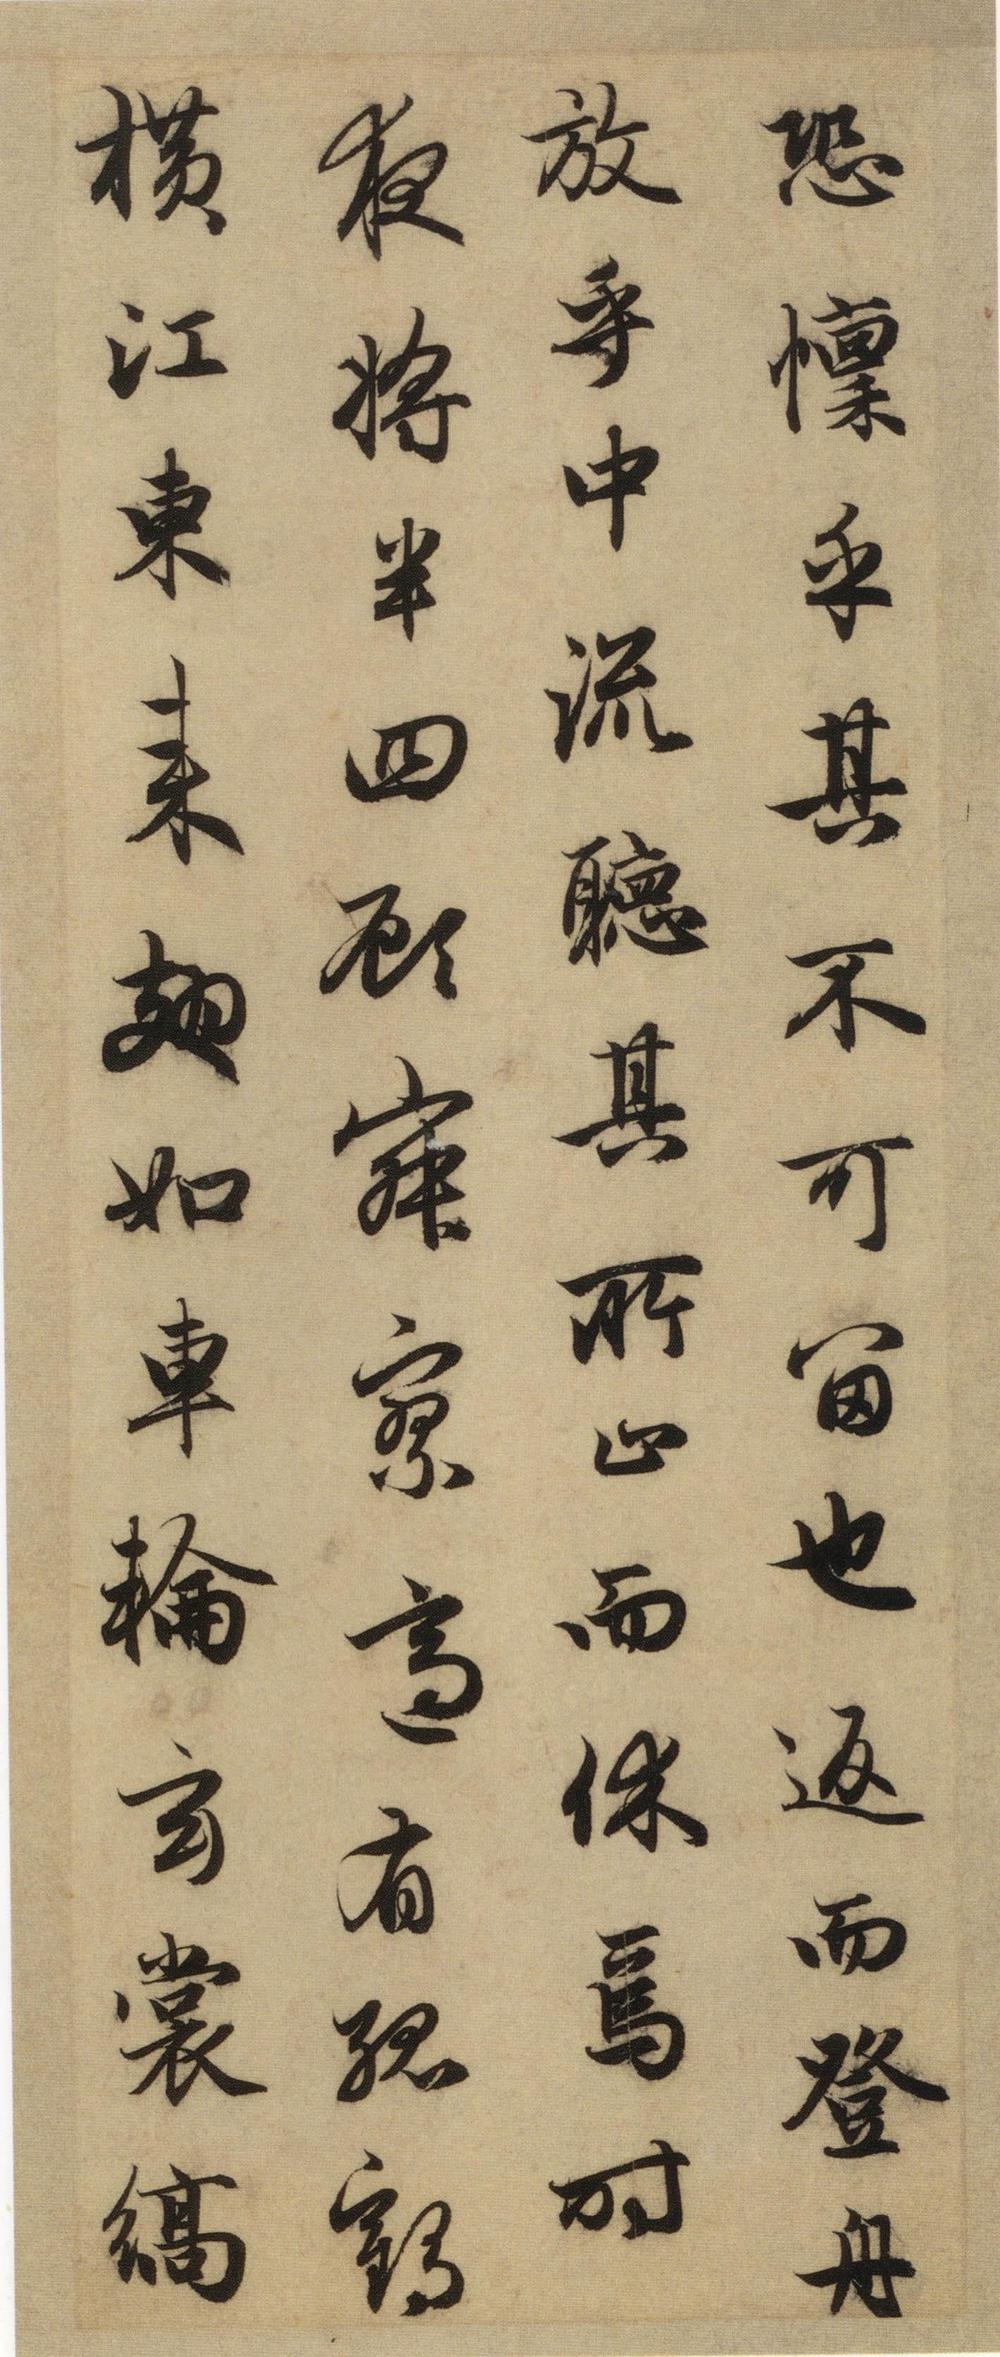 恐懍乎其不可留也返而登舟
放乎中流聽其所止而休焉時
夜將半四顧寂寥適有孤鶴
横江東来翅如車輪玄裳縞